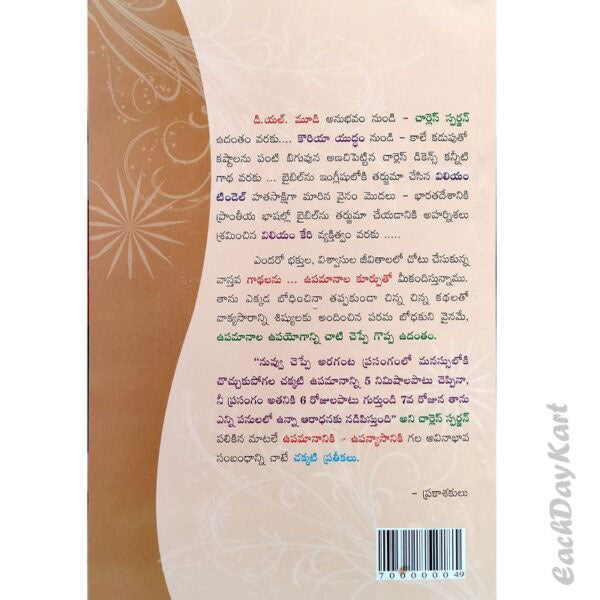 డి.యల్. మూడి అనుభవం నుండి - చార్లెస్ స్పర్జన్
ఉదంతం వరకు.... కొరియా యుద్ధం నుండి - కాలే కడుపుతో
కష్టాలను పంటి బిగువున అణచిపెట్టిన చార్లెస్ డికెన్స్ కన్నీటి
గాథ వరకు ... బైబిల్‌ను ఇంగ్లీషులోకి తర్జుమా చేసిన విలియం
టిండెల్ హతసాక్షిగా మారిన వైనం మొదలు - భారతదేశానికి
ప్రాంతీయ భాషల్లో బైబిల్‌ను తర్జుమా చేయడానికి అహర్నిశలు
శ్రమించిన విలియం కేరి వ్యక్తిత్వం వరకు .....
ఎందరో భక్తుల, విశ్వాసుల జీవితాలలో చోటు చేసుకున్న
వాస్తవ గాథలను ... ఉపమానాల కూర్పుతో మీకందిస్తున్నాము.
తాను ఎక్కడ బోధించినా తప్పకుండా చిన్న చిన్న కథలతో
వాక్యసారాన్ని శిష్యులకు అందించిన పరమ బోధకుని వైనమే,
ఉపమానాల ఉపయోగాన్ని చాటి చెప్పే గొప్ప ఉదంతం.
"నువ్వు చెప్పే అరగంట ప్రసంగంలో మనస్సులోకి
చొచ్చుకుపోగల చక్కటి ఉపమానాన్ని 5 నిమిషాలపాటు చెప్పినా,
నీ ప్రసంగం అతనికి 6 రోజులపాటు గుర్తుండి 7వ రోజున తాను
ఎన్ని పనులలో ఉన్నా ఆరాధనకు నడిపిస్తుంది" అని చార్లెస్ స్పర్జన్
పలికిన మాటలే ఉపమానానికి - ఉపన్యాసానికి గల అవినాభావ
సంబంధాన్ని చాటే చక్కటి ప్రతీకలు.
- ప్రకాశకులు
7 00000 0 49
EachDayKart